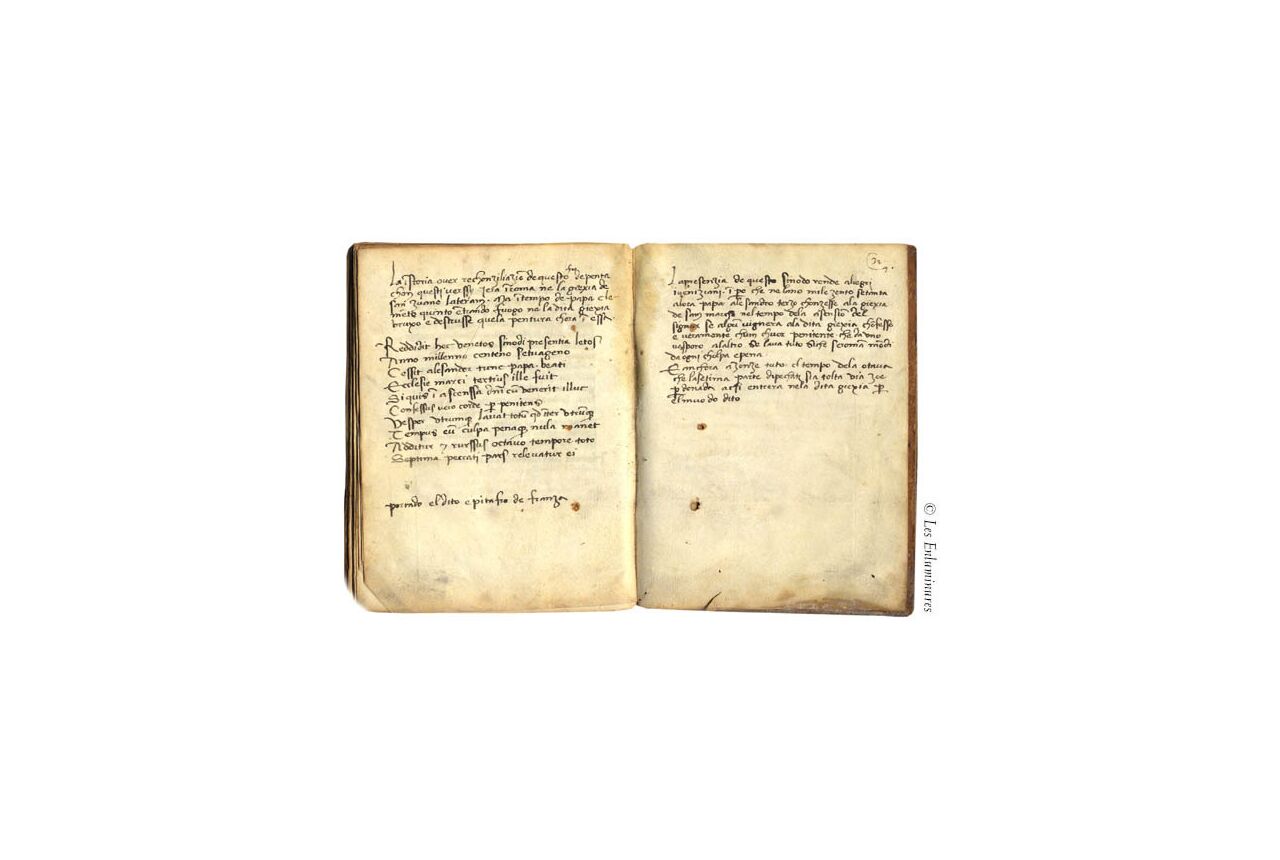 La istoria over rechonziliazio de questo fu depenta
chon questi verssy iera i roma ne la giexia de
san zuano lateram. Ma i tempo de papa cle
mēte quinto ētrando fuogo ne la dita giexia
bruxo e destrusse quela pentura chom i esse
Reddidit hoc venetos sinodi presentia letos
Anno milleno centeno setuageno
Cessit alesander tunc papa beati
Ecclesie marci tertius ille fuit
Si quis i ascenssa dni cū venerit illuc
Confessus vero corde ꝑ penitens
Vesper utrumqꝫ lavat totū qd iter utrumqꝫ
Tempus eū culpa penaqꝫ nula manet
Additur ⁊ rurssus octavo tempore toto
Septima peccati pars relevatur ei
portado el dito epitafio de franza
32
La presenzia de questo sinodo rende alegri
i veniziani. i pe che ne lano mile zento setanta
alora papa alesandro terzo chonzesse ala giexia
de sam marcho nel tempo dela asensio del
signor se algū vignera ala dita giexia chōfesso
e veramente chum chuor penitente che da uno
vesporo alaltro se lava tuto
da ogni cholpa e pena
E anchora azonze tuto el tempo dela otava
che la setima parte di pechati sia tolta via zoe
ꝑdonada a chi entrera nela dita giexia ꝑ
el muodo dito